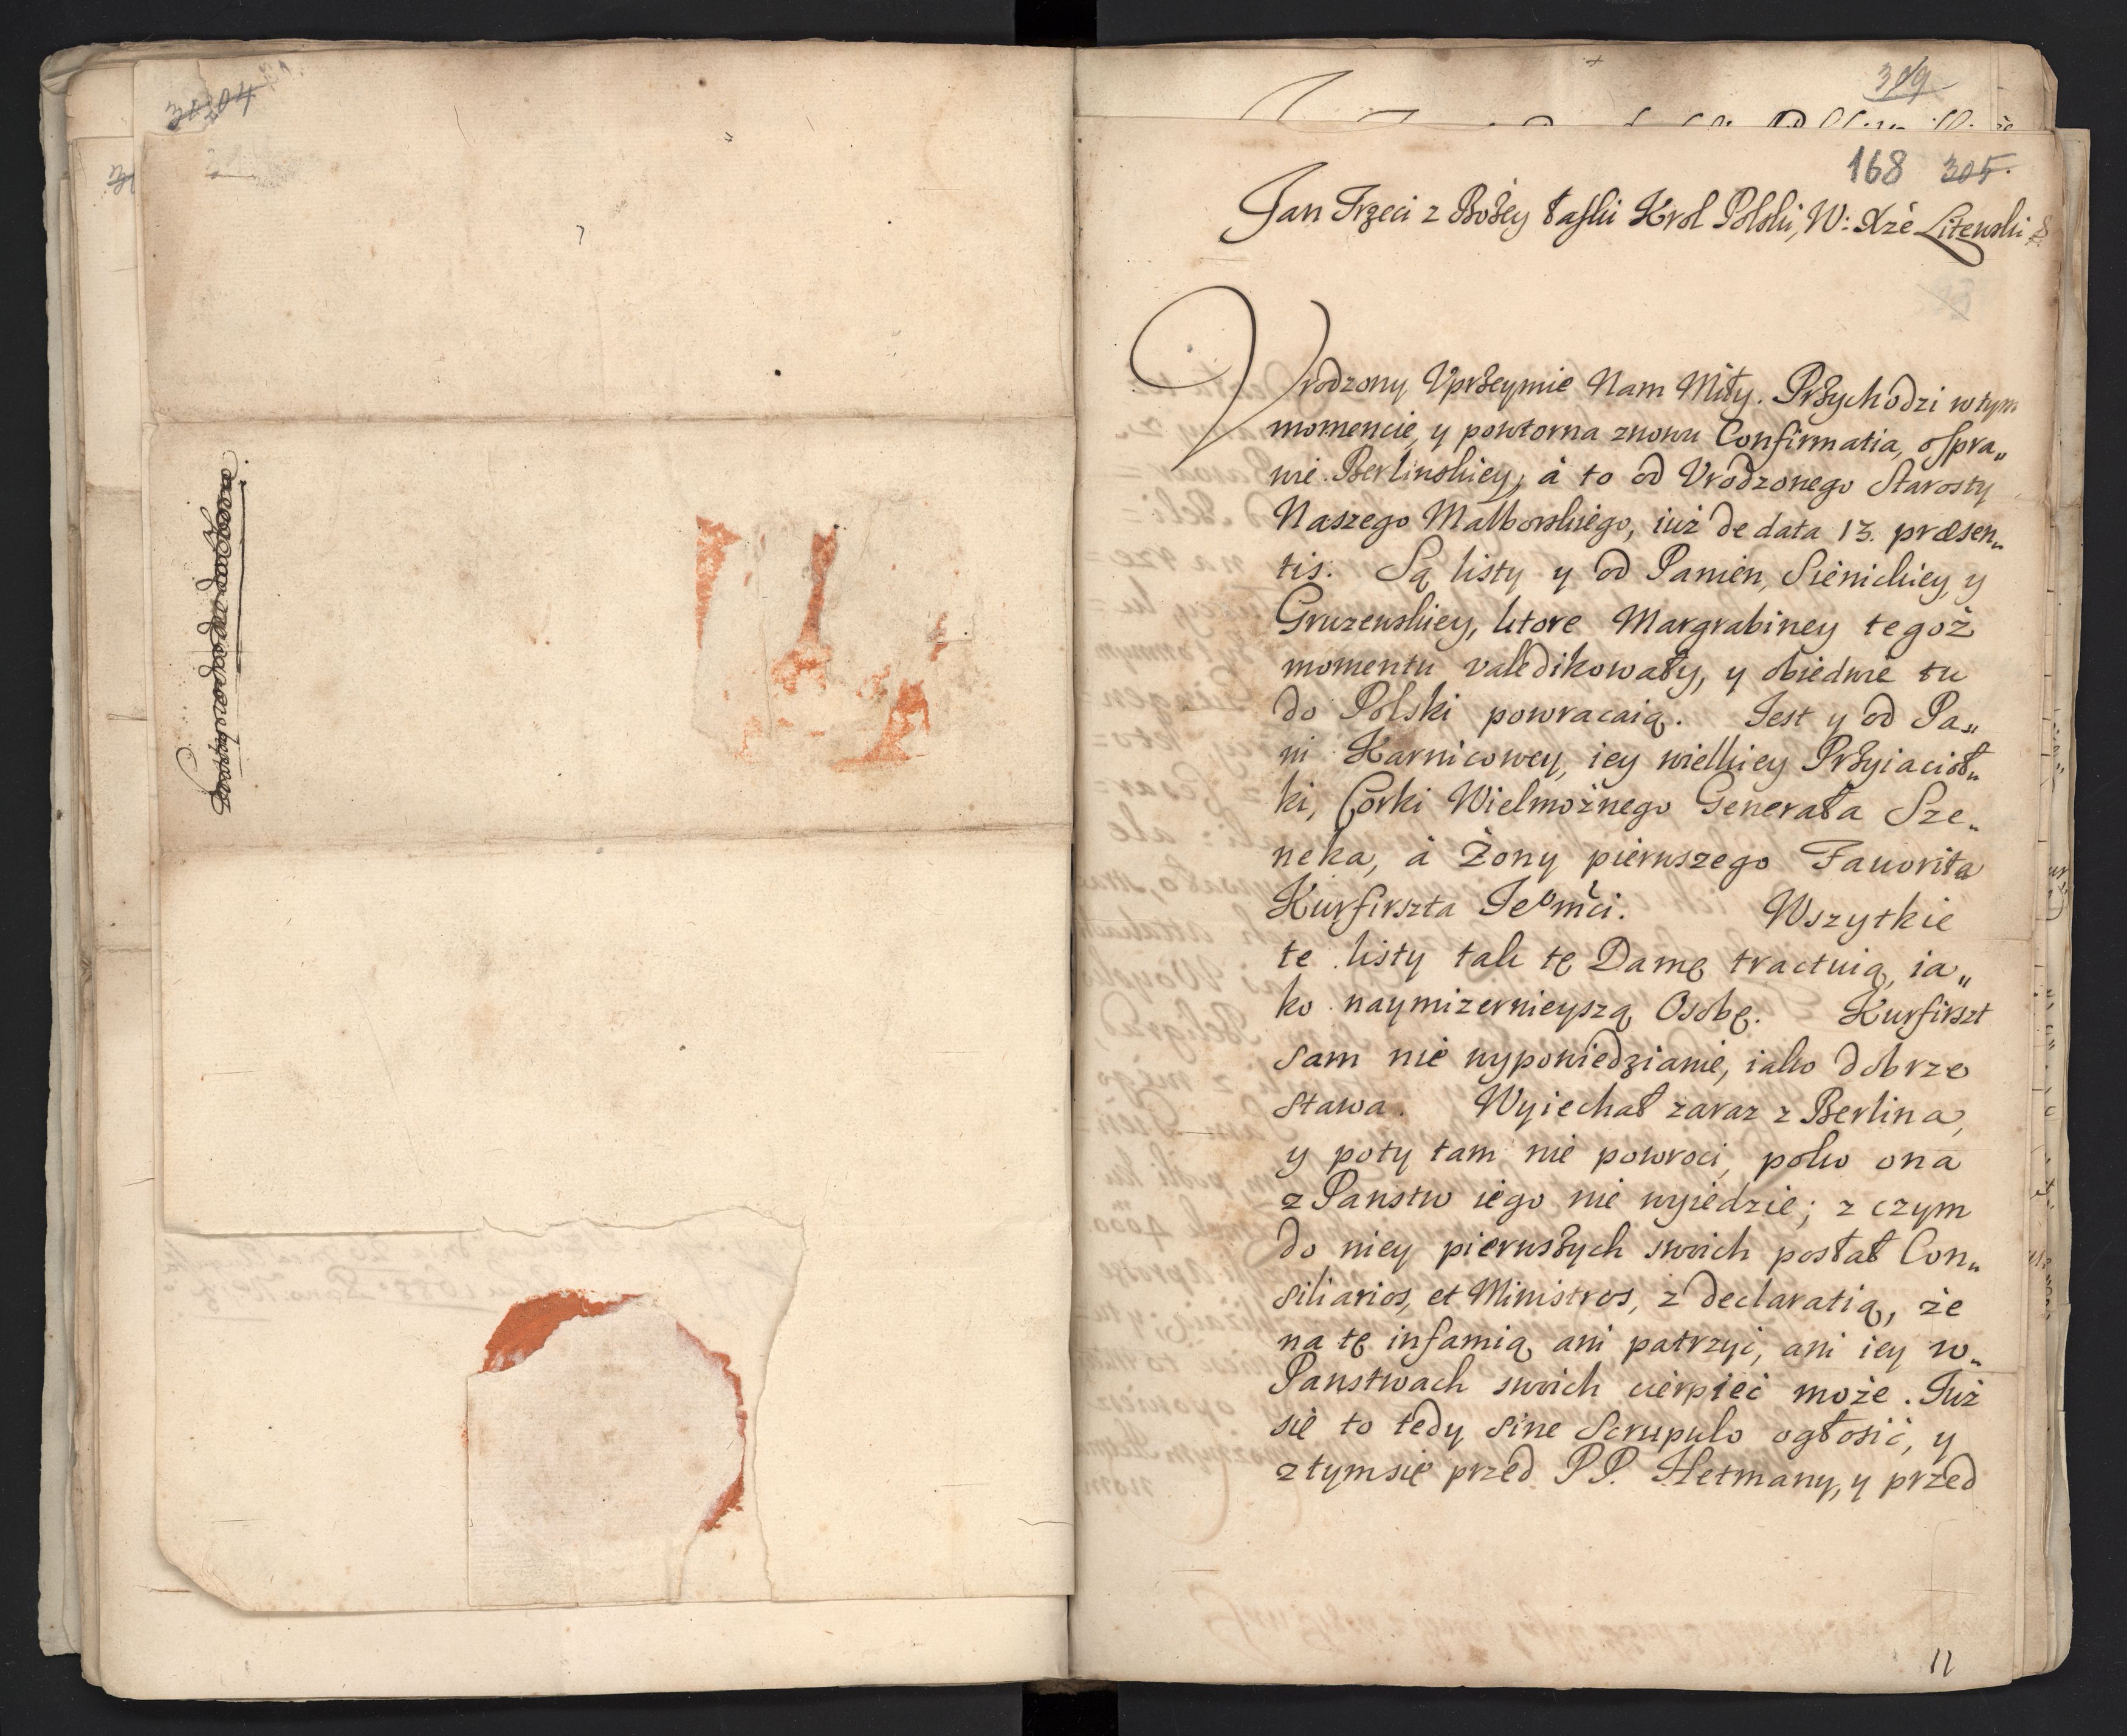 319
168 305.
Jan Trzeci z Bożey łaski Krol Polski, W: Xże Litewski &
Vrodzony Vprzeymie Nam Miły. Przychodzi w tym
momencie, y powtorna znowu Confirmatia, o spra„
wie Berlinskiey, á to od Vrodzonego Starosty
Naszego Malborskiego, iuż de data 13. præsen„
tis. Są listy y od Panien, Sienickiey, y
Gruzewskiey, ktore Margrabiney tegoż
momentu valedikowały, y obiedwie tu
do Polski powracaią. Iest y od Pa„
ni Karnicowey, iey wielkiey Przyiacioł„
ki, Corki Wielmożnego Generała Sze„
neka, á Żony pierwszego Fauorita
Kurfirszta Ieomści. Wszytkie
te listy tak tę Damę tractuią, ia„
ko naymizernieyszą Osobę. Kurfirszt
sam nie wypowiedzianie, iako dobrze
stawa. Wyiechał zaraz z Berlina,
y poty tam nie powroci, poko ona
z Panstw iego nie wyiedzie; z czym
do niey pierwszych swoich posłał Con„
siliarios, et Ministros, z declaratią, że
na tę infamią ani patrzyć, ani iey w„
Panstwach swoich cierpieć może. Iuż
się to tedy sine Scrupulo ogłosić, y
z tym się przed P P. Hetmany, y przed
11